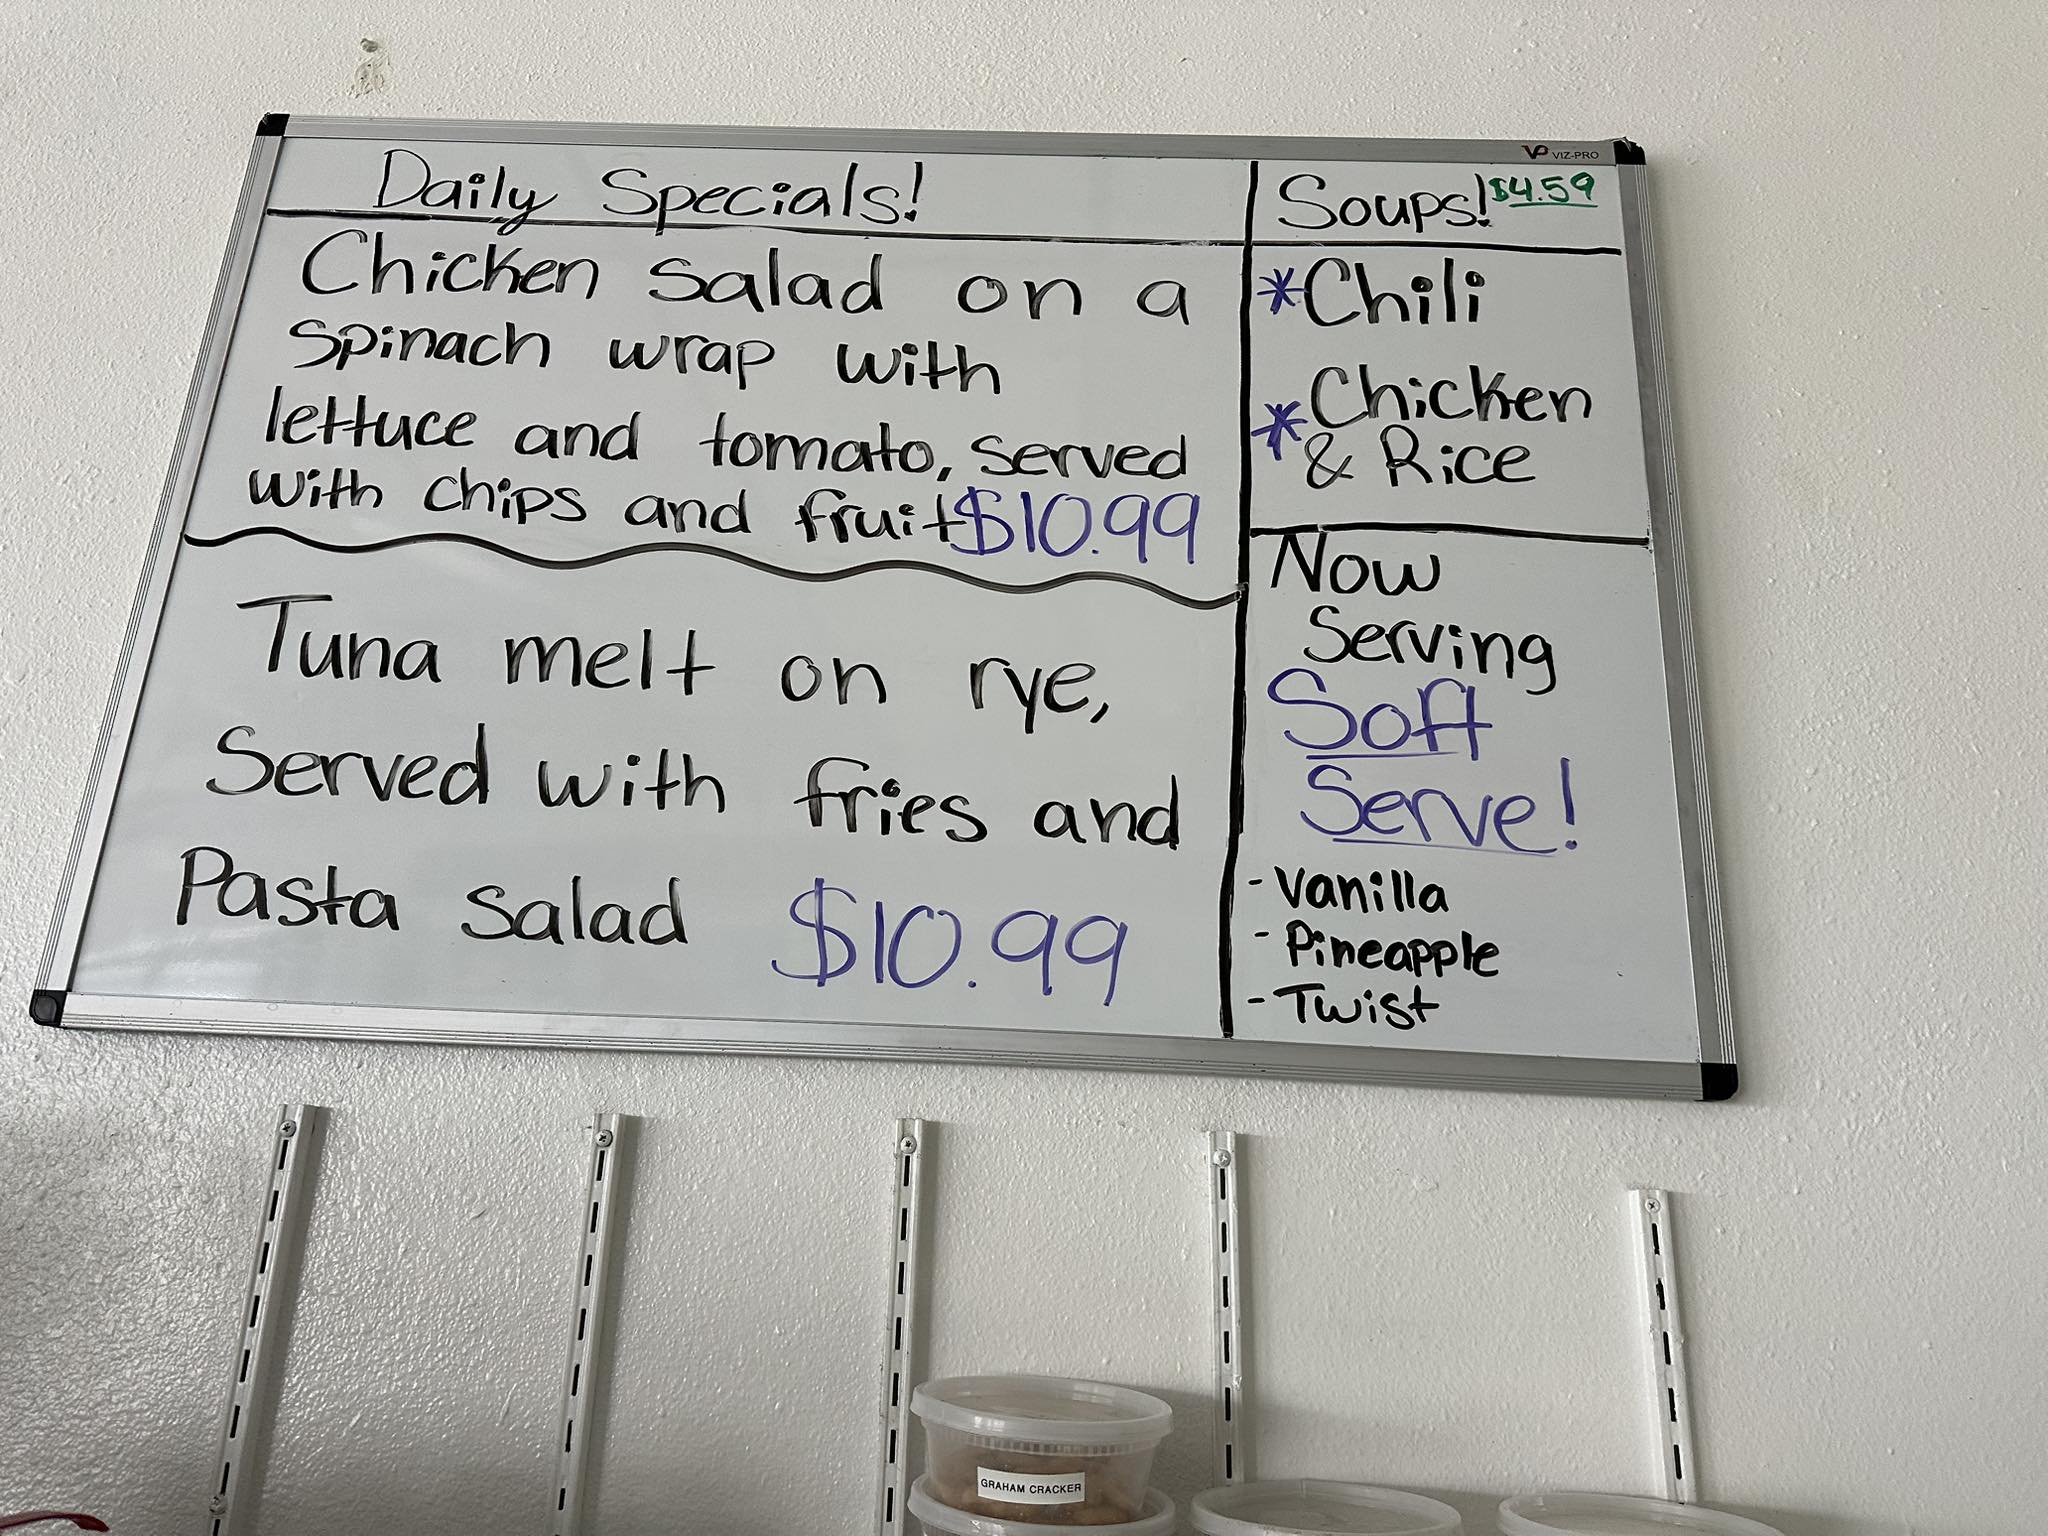 VP VIZ-PRO
Daily Specials!
Chicken Salad on a
Spinach wrap with
lettuce and tomato, served
with chips and fruit $10.99
Tuna melt on rye,
Served with fries and
Pasta Salad $10.99
Soups! $4.59
*Chili
*Chicken
& Rice
Now
Serving
Soft
Serve!
- Vanilla
- Pineapple
- Twist
GRAHAM CRACKER